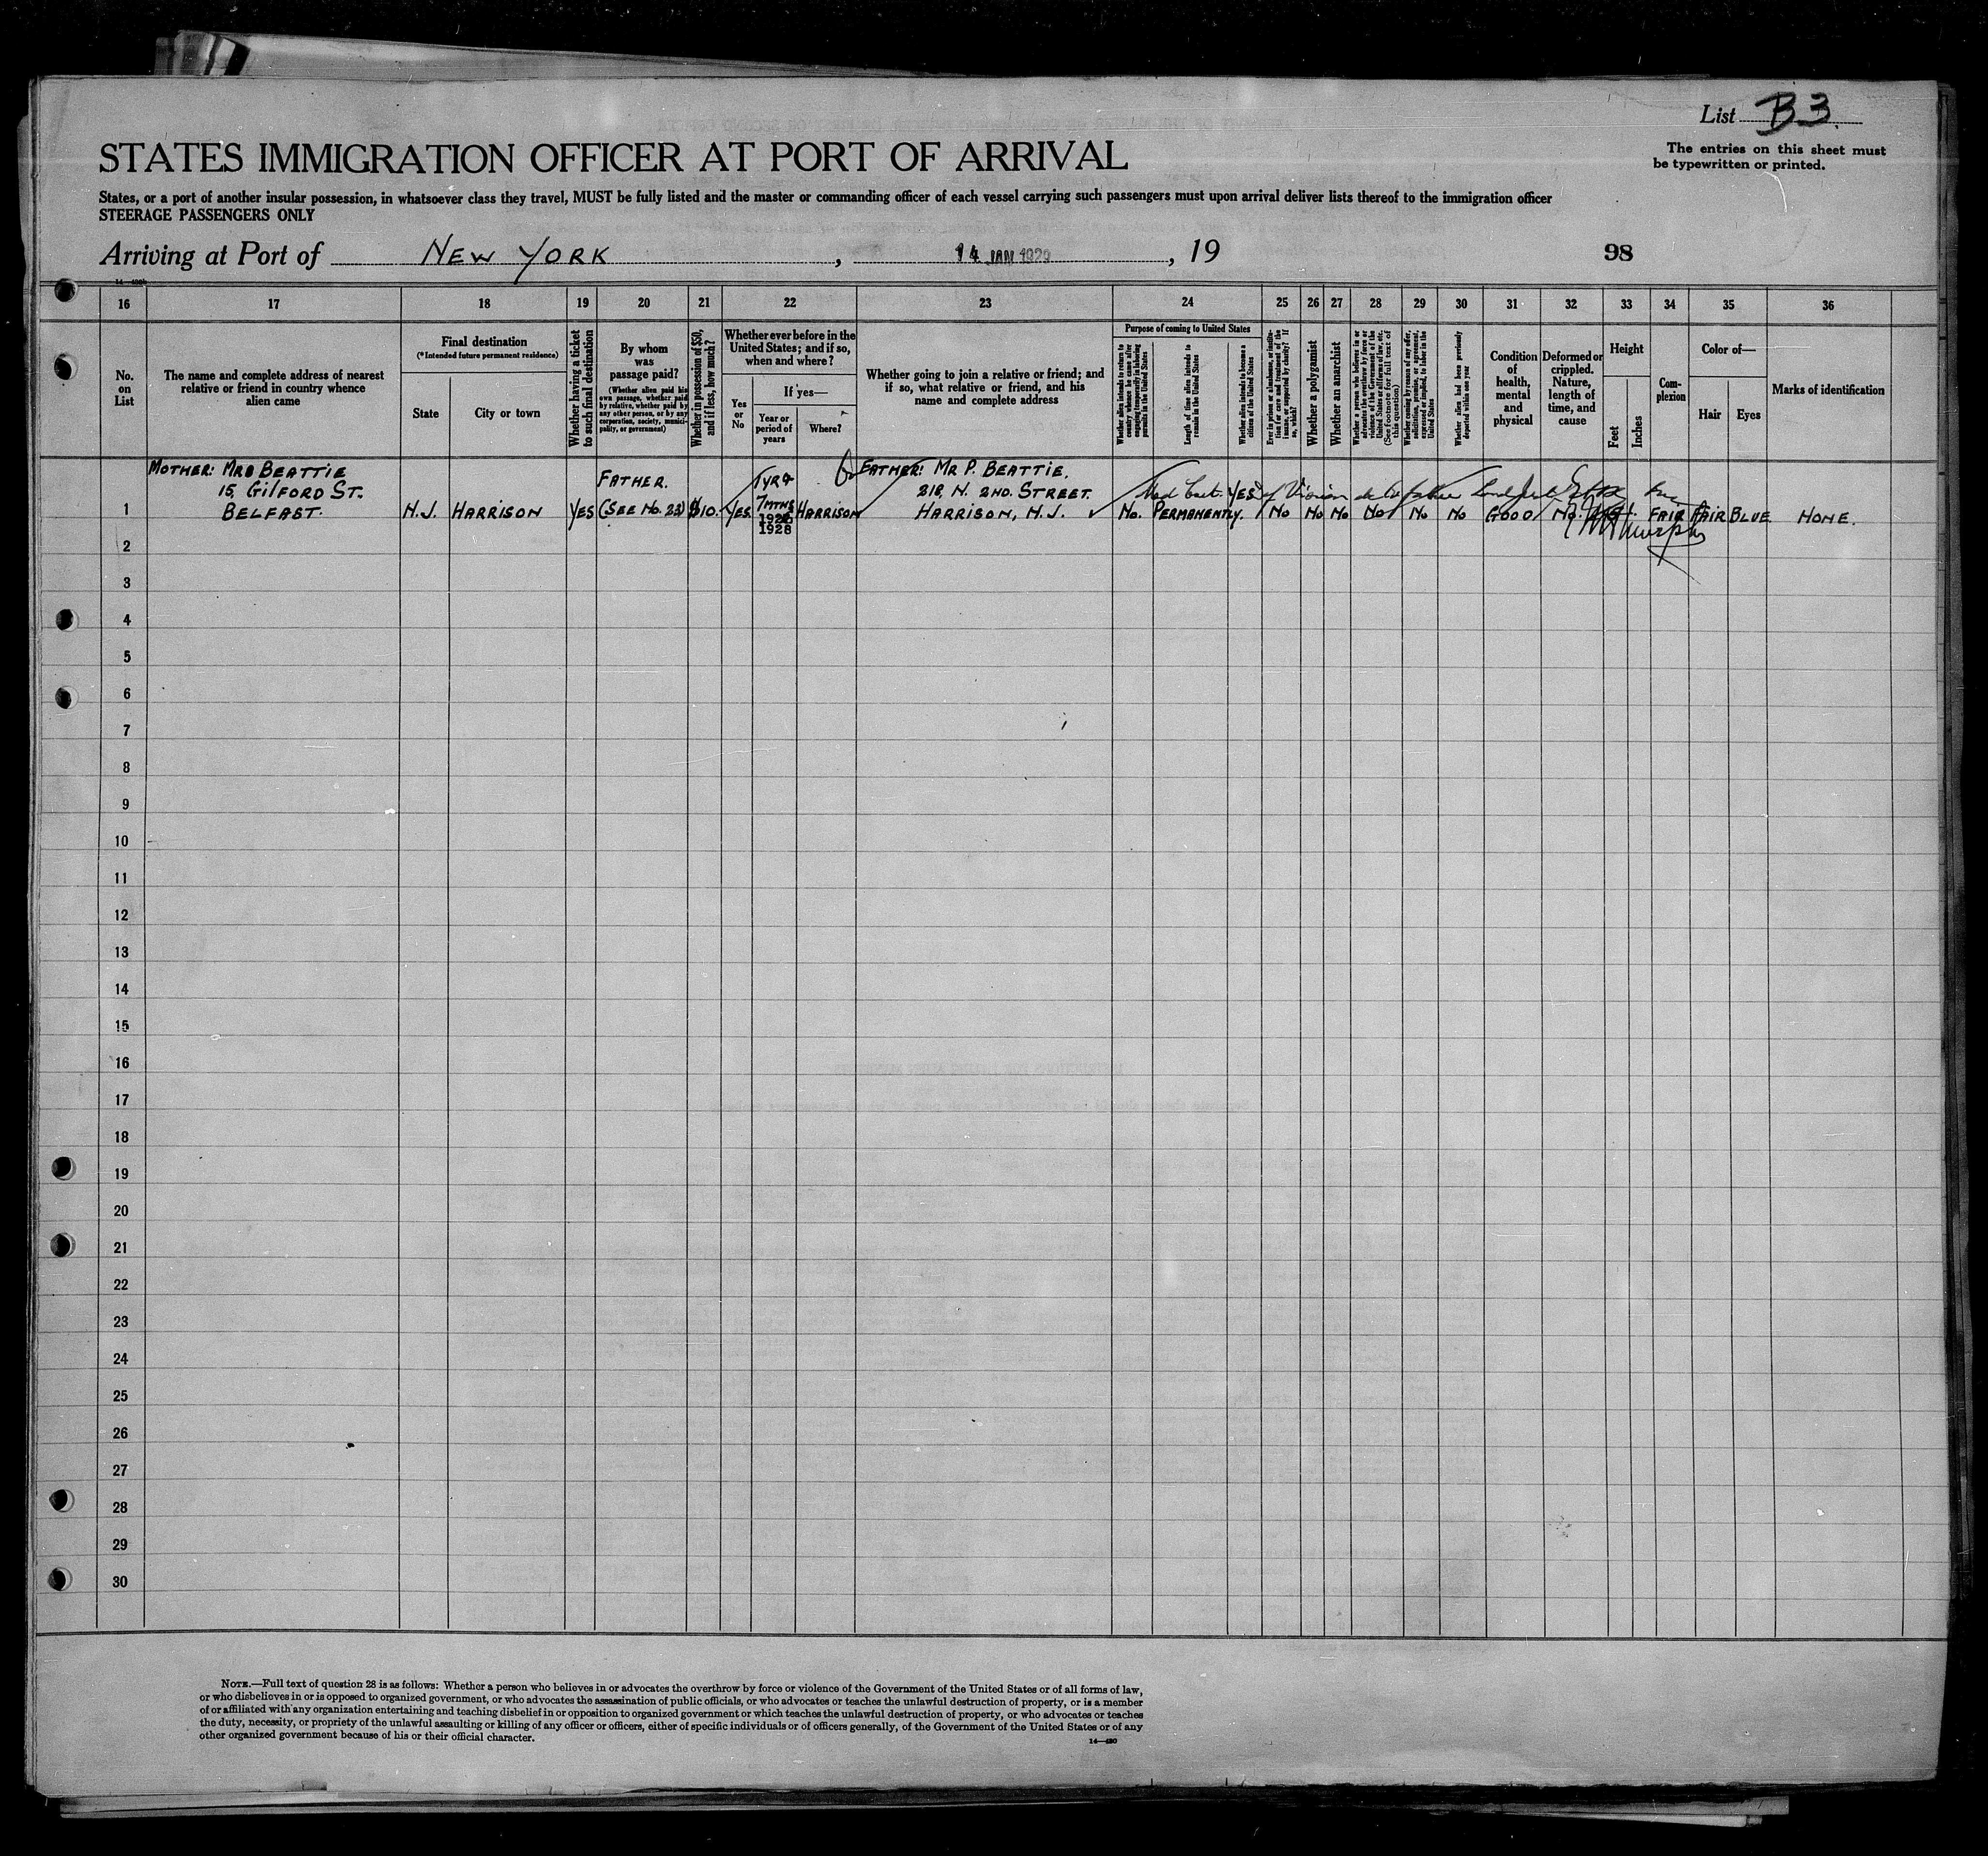 List B3.
The entries on this sheet must
be typewritten or printed.
STATES IMMIGRATION OFFICER AT PORT OF ARRIVAL
States, or a port of another insular possession, in whatsoever class they travel, MUST be fully listed and the master or commanding officer of each vessel carrying such passengers must upon arrival deliver lists thereof to the immigration officer
STEERAGE PASSENGERS ONLY
Arriving at Port of NEW YORK, 14 JAN 1929, 19
98
16 17 18 19 20 21 22 23 24 25 26 27 28 29 30 31 32 33 34 35 36
No.
on
List
The name and complete address of nearest
relative or friend in country whence
alien came
Final destination
(*Intended future permanent residence)
State
City or town
Whether having a ticket
to such final destination
By whom
was
passage paid?
(Whether alien paid his
own passage, whether paid
by relative, whether paid by
any other person, or by any
corporation, society, munici-
pality, or government)
Whether in possession of $50,
and if less, how much?
Whether ever before in the
United States; and if so,
when and where?
Yes
or
No
If yes—
Year or
period of
years
Where?
Whether going to join a relative or friend; and
if so, what relative or friend, and his
name and complete address
Purpose of coming to United States
Whether alien intends to return to
country whence he came after
engaging temporarily in laboring
pursuits in the United States
Length of time alien intends to
remain in the United States
Whether alien intends to become a
citizen of the United States
Ever in prison or almshouse, or institu-
tion for care and treatment of the
insane, or supported by charity? If
so, which?
Whether a polygamist
Whether an anarchist
Whether a person who believes in or
advocates the overthrow by force or
violence of the Government of the
United States or all forms of law, etc.
(See footnote for full text of
this question)
Whether coming by reason of any offer,
solicitation, promise, or agreement,
expressed or implied, to labor in the
United States
Whether alien had been previously
deported within one year
Condition
of
health,
mental
and
physical
Deformed or
crippled.
Nature,
length of
time, and
cause
Height
Feet
Inches
Com-
plexion
Color of—
Hair
Eyes
Marks of identification
MOTHER: MRS BEATTIE
15, GILFORD ST.
BELFAST.
1
N.J. HARRISON YES
FATHER.
(SEE NO. 23)
$10. YES
1 YR &
7 MTHS
1928
HARRISON
FATHER: MR P. BEATTIE.
218, N. 2ND. STREET.
HARRISON, N.J.
No. PERMANENTLY. YES No No No No No No GOOD No. FAIR FAIR BLUE NONE.
2
3
4
5
6
7
8
9
10
11
12
13
14
15
16
17
18
19
20
21
22
23
24
25
26
27
28
29
30
NOTE.—Full text of question 28 is as follows: Whether a person who believes in or advocates the overthrow by force or violence of the Government of the United States or of all forms of law,
or who disbelieves in or is opposed to organized government, or who advocates the assassination of public officials, or who advocates or teaches the unlawful destruction of property, or is a member
of or affiliated with any organization entertaining and teaching disbelief in or opposition to organized government or which teaches the unlawful destruction of property, or who advocates or teaches
the duty, necessity, or propriety of the unlawful assaulting or killing of any officer or officers, either of specific individuals or of officers generally, of the Government of the United States or of any
other organized government because of his or their official character.
14—430